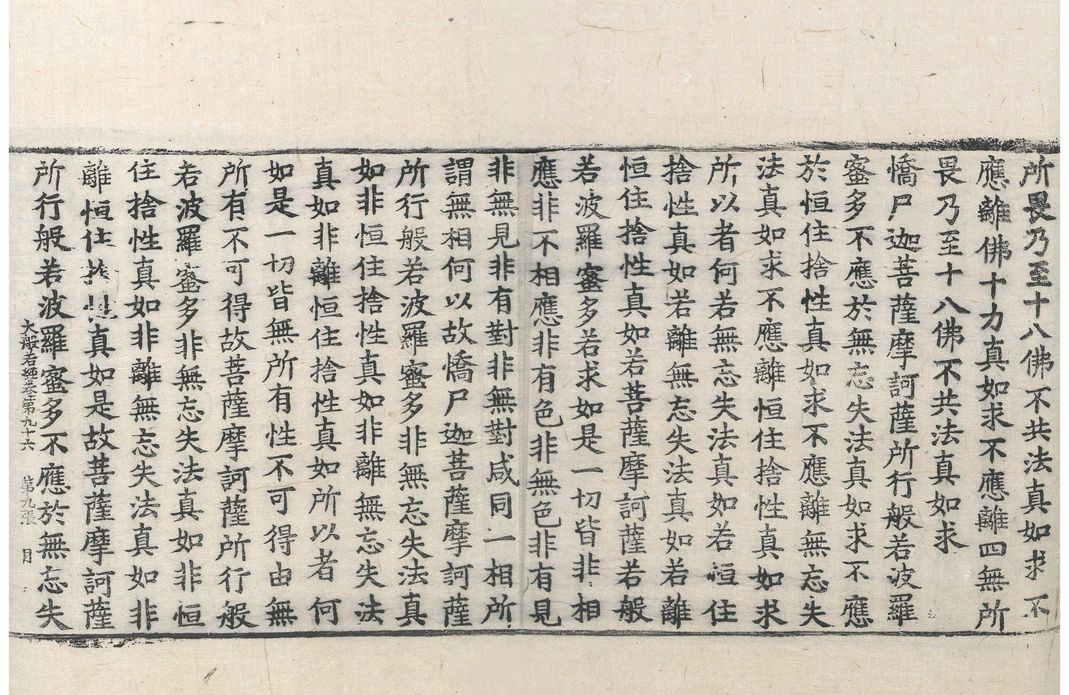 所畏乃至十八佛不共法真如求不
應離佛十力真如求不應離四無所
畏乃至十八佛不共法真如求
憍尸迦菩薩摩訶薩所行般若波羅
蜜多不應於無忘失法真如求不應
於恒住捨性真如求不應離無忘失
法真如求不應離恒住捨性真如求
所以者何若無忘失法真如若恒住
捨性真如若離無忘失法真如若離
恒住捨性真如若菩薩摩訶薩若般
若波羅蜜多若求如是一切皆非相
應非不相應非有色非無色非有見
非無見非有對非無對咸同一相所
謂無相何以故憍尸迦菩薩摩訶薩
所行般若波羅蜜多非無忘失法真
如非恒住捨性真如非離無忘失法
真如非離恒住捨性真如所以者何
如是一切皆無所有性不可得由無
所有不可得故菩薩摩訶薩所行般
若波羅蜜多非無忘失法真如非恒
住捨性真如非離無忘失法真如非
離恒住捨性真如是故菩薩摩訶薩
所行般若波羅蜜多不應於無忘失
大般若經卷第九十六 第九張 目